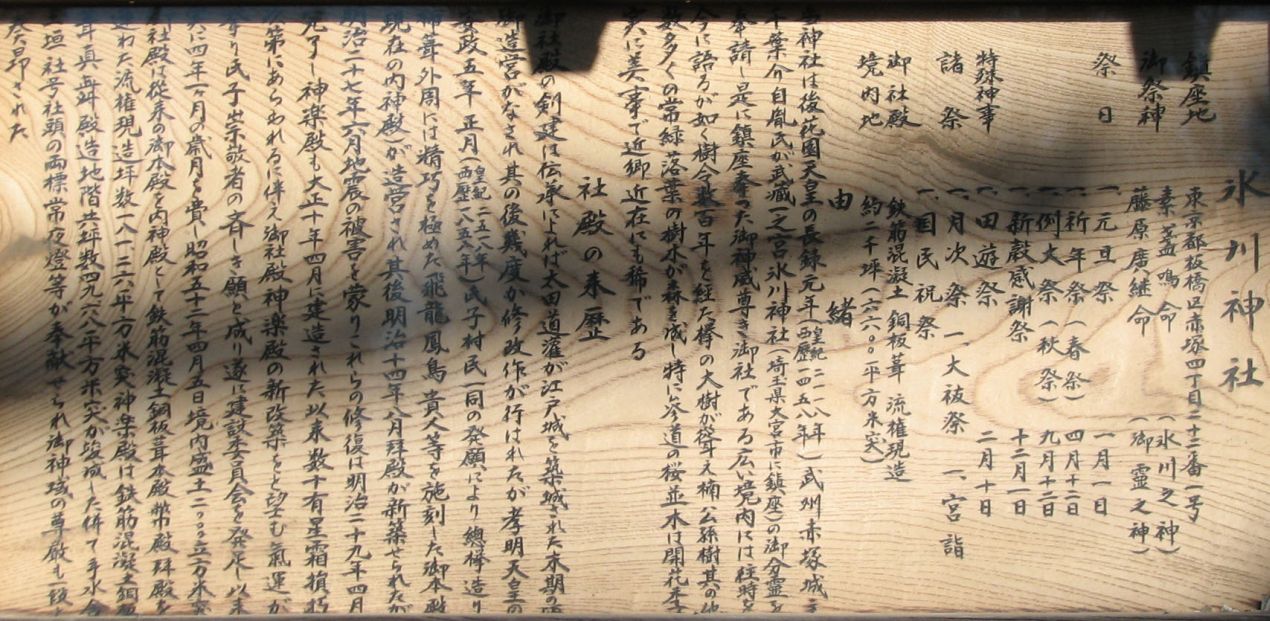 氷川神社
鎮座地 東京都板橋区赤塚四丁目二十二番一号
御祭神 素盞嗚命 (氷川之神)
藤原廣継命 (御霊之神)
祭日 一、元旦祭 一月一日
一、祈年祭(春祭) 四月十二日
一、例大祭(秋祭) 九月十二日
一、新穀感謝祭 十二月一日
特殊神事 一、田遊祭 二月十日
諸祭 一、月次祭 一、大祓祭 一、宮詣
一、国民祝祭
御社殿 鉄筋混凝土銅板葺 流権現造
境内地 約二千坪(六六〇〇平方米突)
由緒
当神社は後花園天皇の長録元年(皇紀二一一八年 西歴一四五八年)武州赤塚城主
千葉介自胤氏が武蔵一之宮氷川神社(埼玉県大宮市に鎮座)の御分霊を
奉請し是に鎮座奉った御神威尊き御社である広い境内には往時を
今に語るが如く樹令数百年を経た欅の大樹が聳え楠公孫樹其の他
数多くの常緑落葉の樹木が森を成し特に参道の桜並木は開花
実に美事で近郷近在にも稀である
社殿の来歴
御社殿の創建は伝承によれば太田道灌が江戸城を築城された末期の
御造営がなされ其の後幾度か修改作が行はれたが孝明天皇の
安政五年正月(皇紀二五一八年 西歴一八五八年)氏子村民一同の発願により總欅造り
布葺外周には精巧を極めた飛龍鳳鳥貴人等を施刻した御本殿
現在の内神殿)が造営され其後明治十四年八月拝殿が新築せられたが
明治二十七年六月地震の被害を蒙りこれらの修復は明治二十九年四月
完了し神楽殿も大正十年四月に建造された以来数十有星霜損朽
次第にあらわれるに伴え御社殿神楽殿の新改築をと望む氣運が
奉り氏子崇敬者の斉しき願と成り遂に建設委員会を発足し以来
実に四年一ヶ月の歳月を費し昭和五十二年四月五日境内盛土二〇〇立方米突
社殿は従来の御本殿を内神殿として鉄筋混凝土銅板葺本殿幣殿拝殿を
連ねた流権現造坪数一八一・二六平方米突神楽殿は鉄筋混凝土銅板
葺真舞殿造地階共坪数四九・六八平方米突が竣成した併て手水舎
玉垣社号社頭の両標常夜燈等が奉献せられ御神域の尊厳も一段と
発昂された